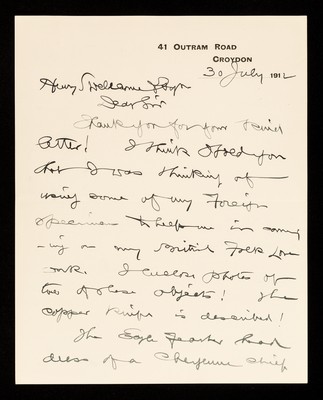 41 OUTRAM ROAD
CROYDON
30 July 1912
Henry S Wellcome Esqr
Dear Sir
Thank you for your kind
letter! I think I told you
that I was thinking of
using some of my Foreign
specimens to help me in carry
-ing on my British Folk Lore
-work. I enclose photos of
two of these objects! The
copper knife is described!
The Eagle feather head
dress of a Cheyenne Chief